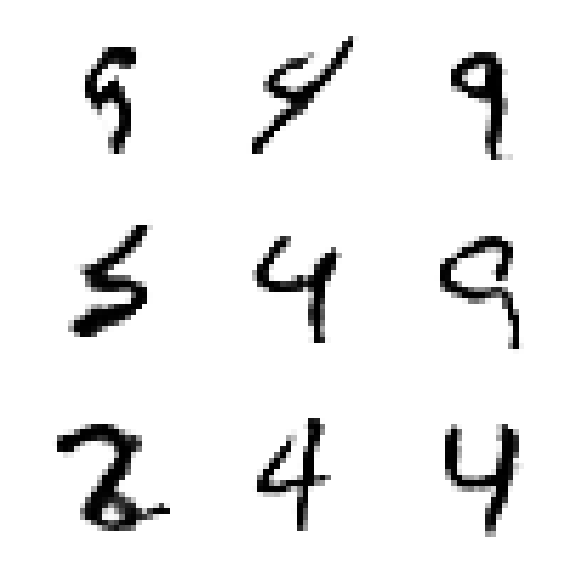 9 4 9
5 4 9
2 4 4